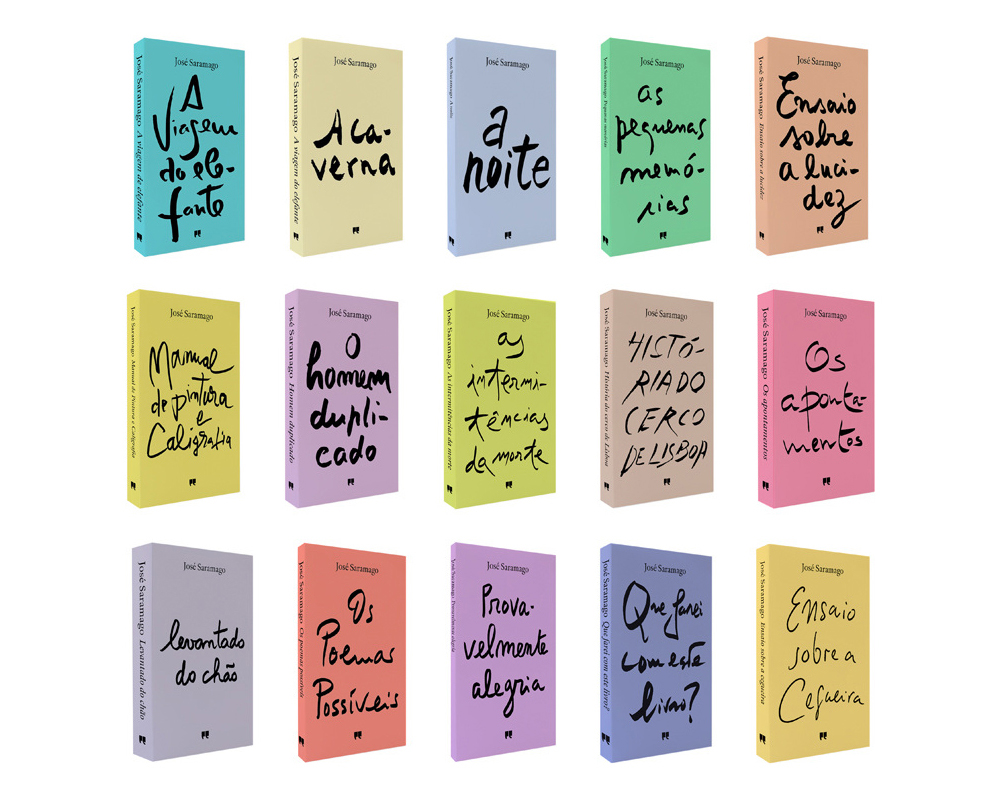 José Saramago A viagem do elefante
José Saramago
A
Viagem
do ele-
fante
José Saramago A viagem do elefante
José Saramago
A ca-
verna
José Saramago A noite
José Saramago
a
noite
José Saramago Pequenas memórias
José Saramago
as
pequenas
memó-
rias
José Saramago Ensaio sobre a lucidez
José Saramago
Ensaio
sobre
a luci-
dez
José Saramago Manual de Pintura e Caligrafia
José Saramago
Manual
de pintura
e
Caligrafia
José Saramago Homem duplicado
José Saramago
O
homem
dupli-
cado
José Saramago As intermitências da morte
José Saramago
as
intermi-
tências
da morte
José Saramago História do cerco de Lisboa
José Saramago
HISTÓ-
RIA DO
CERCO
DE LISBOA
José Saramago Os apontamentos
José Saramago
Os
aponta-
mentos
José Saramago Levantado do chão
José Saramago
levantado
do chão
José Saramago Os poemas possíveis
José Saramago
Os
Poemas
Possíveis
José Saramago Provavelmente alegria
José Saramago
Prova-
velmente
alegria
José Saramago Que farei com este livro?
José Saramago
Que farei
com este
livro?
José Saramago Ensaio sobre a cegueira
José Saramago
Ensaio
sobre a
Cegueira